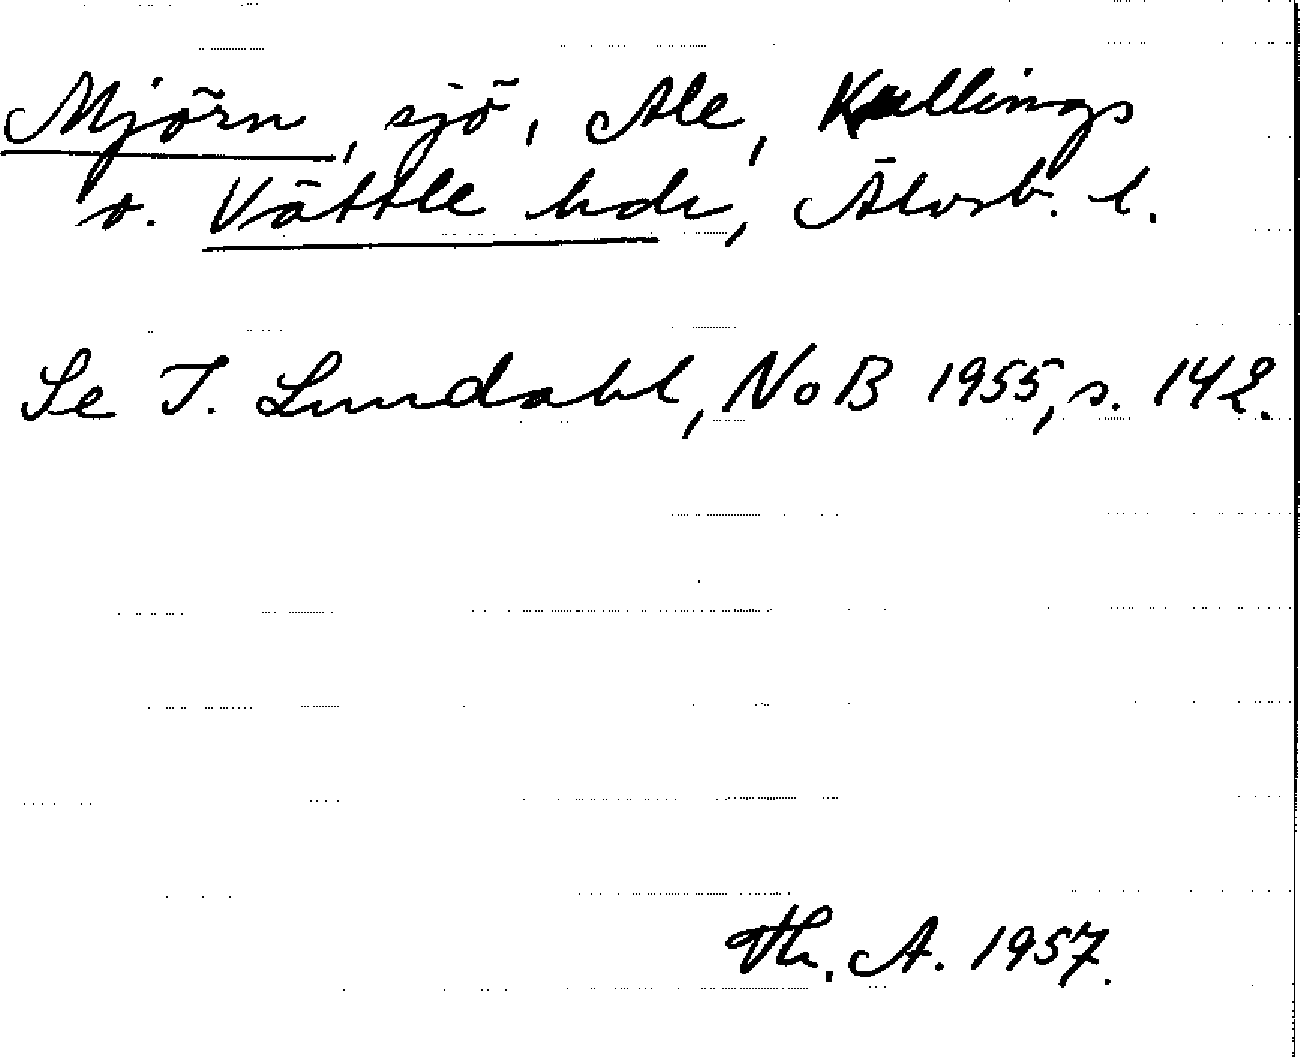 Mjörn, sjö, Ale, Kullings
o. Vättle hdr, Älvsb. l.
Se I. Lundahl, NoB 1955, s. 142.
Th. A. 1957.